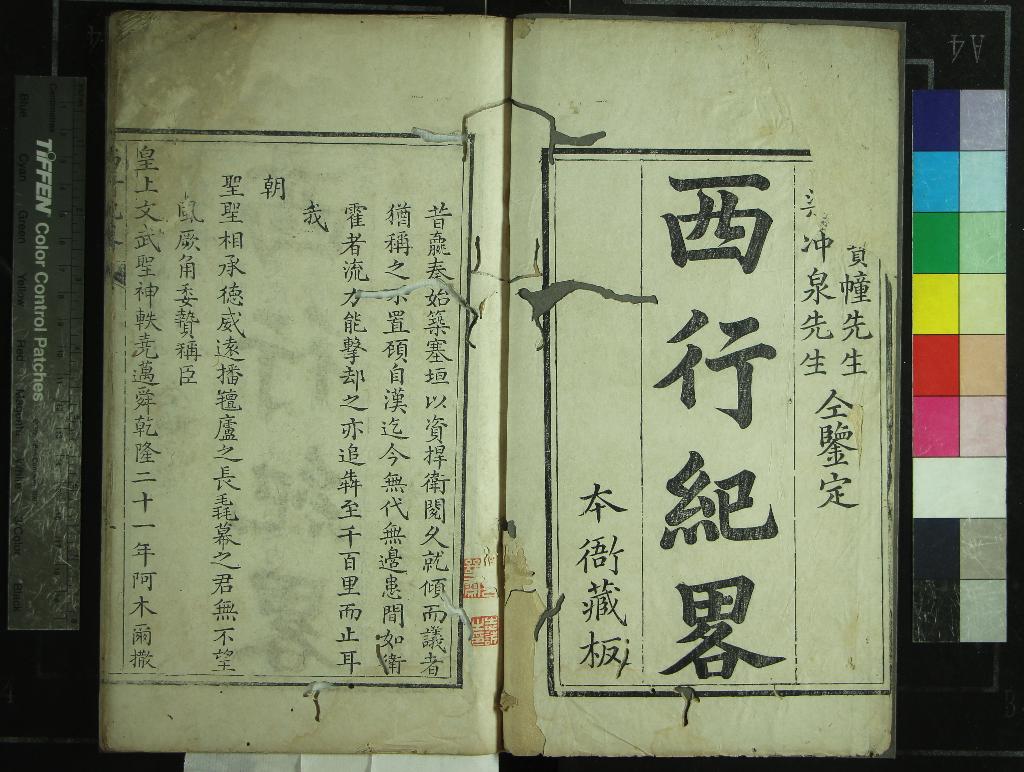 幢先生
冲泉先生
仝鑒定
西行紀畧
本衙藏板
昔嬴秦始築塞垣以資捍衛閱久就傾而議者
猶稱之不置顧自漢迄今無代無邊患間如衛
霍者流力能擊却之亦追奔至千百里而止耳
我
朝
聖聖相承德威遠播氊廬之長毳幕之君無不望
風厥角委贄稱臣
皇上文武聖神軼堯邁舜乾隆二十一年阿木爾撒
TIFFEN Color Control Patches
Blue
Cyan
Green
Yellow
Red
Magenta
White
3/Color
Black
A4